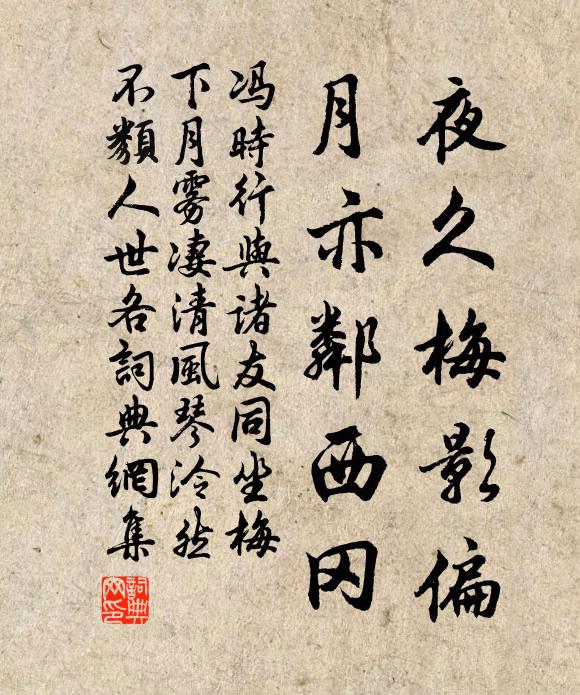 夜久梅影偏
月亦鄰西冈
冯時行與诸友同坐梅
下月雾凄清風琴泠然
不類人世各詞典網集
詞典
网印